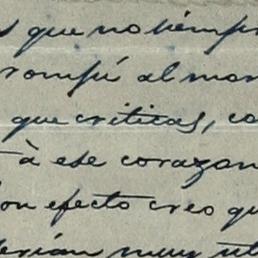 que no siempre
rompí al mom
que criticas, co
à ese corazon
Con efecto creo qu
serían muy ut